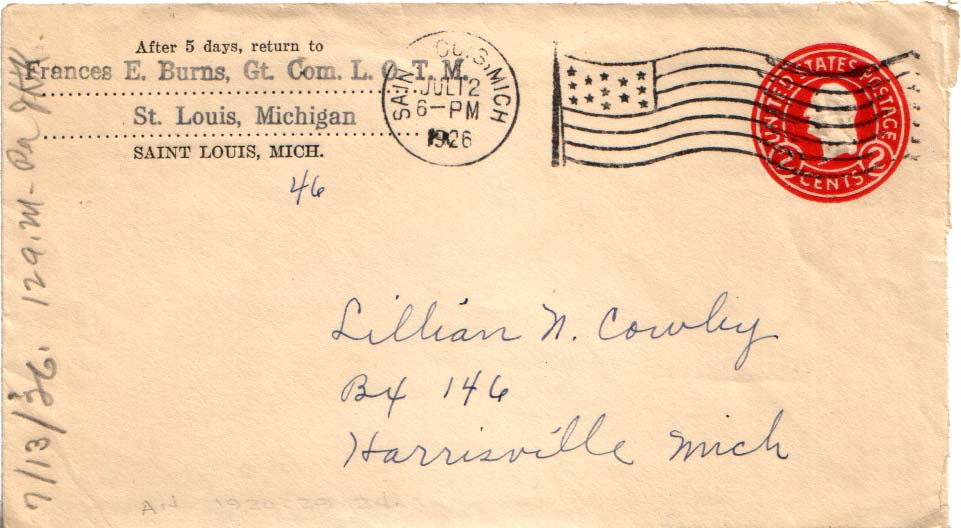 After 5 days, return to
Frances E. Burns, Gt. Com. L. O. T. M.
St. Louis, Michigan
SAINT LOUIS, MICH.
46
SAIN OUIS, MICH
JUL 12
6-PM
1926
UNITED STATES POSTAGE
2 CENTS 2
Lillian N. Cowley
Bx 146
Harrisville Mich
7/13/26. 129.M-